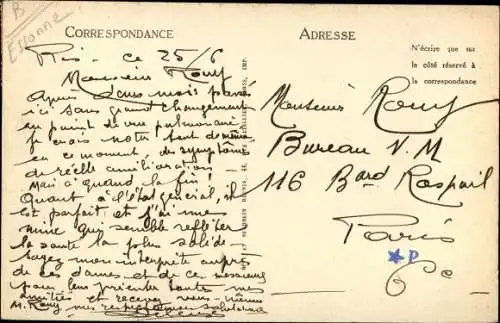 B
Essonne
CORRESPONDANCE
Ris - ce 25/6
Monsieur Rouy
Après deux mois passés
ici sans grand changement
au point de vue pulmonaire
je crois noter tout de même
en ce moment des symptômes
de réelle amélioration -
Mais à quand la fin!
Quant à l'état général, il
est parfait et j'ai une
mine qui semble refléter
la santé la plus solide -
Soyez mon interprète auprès
de ces dames et de ces messieurs
pour leur présenter toutes mes
amitiés et recevez vous-même
M. Rouy mes respectueuses salutations
ADRESSE
N'écrire que sur
le côté réservé à
la correspondance
Monsieur Rouy
Bureau V. M
116 Bard Raspail
Paris
*P